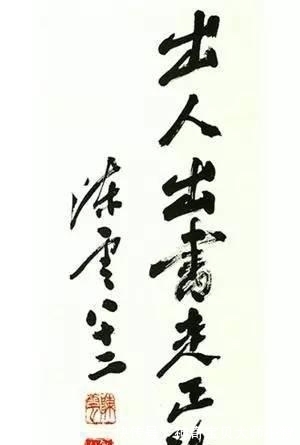 出人出書走正
陈雲八十二